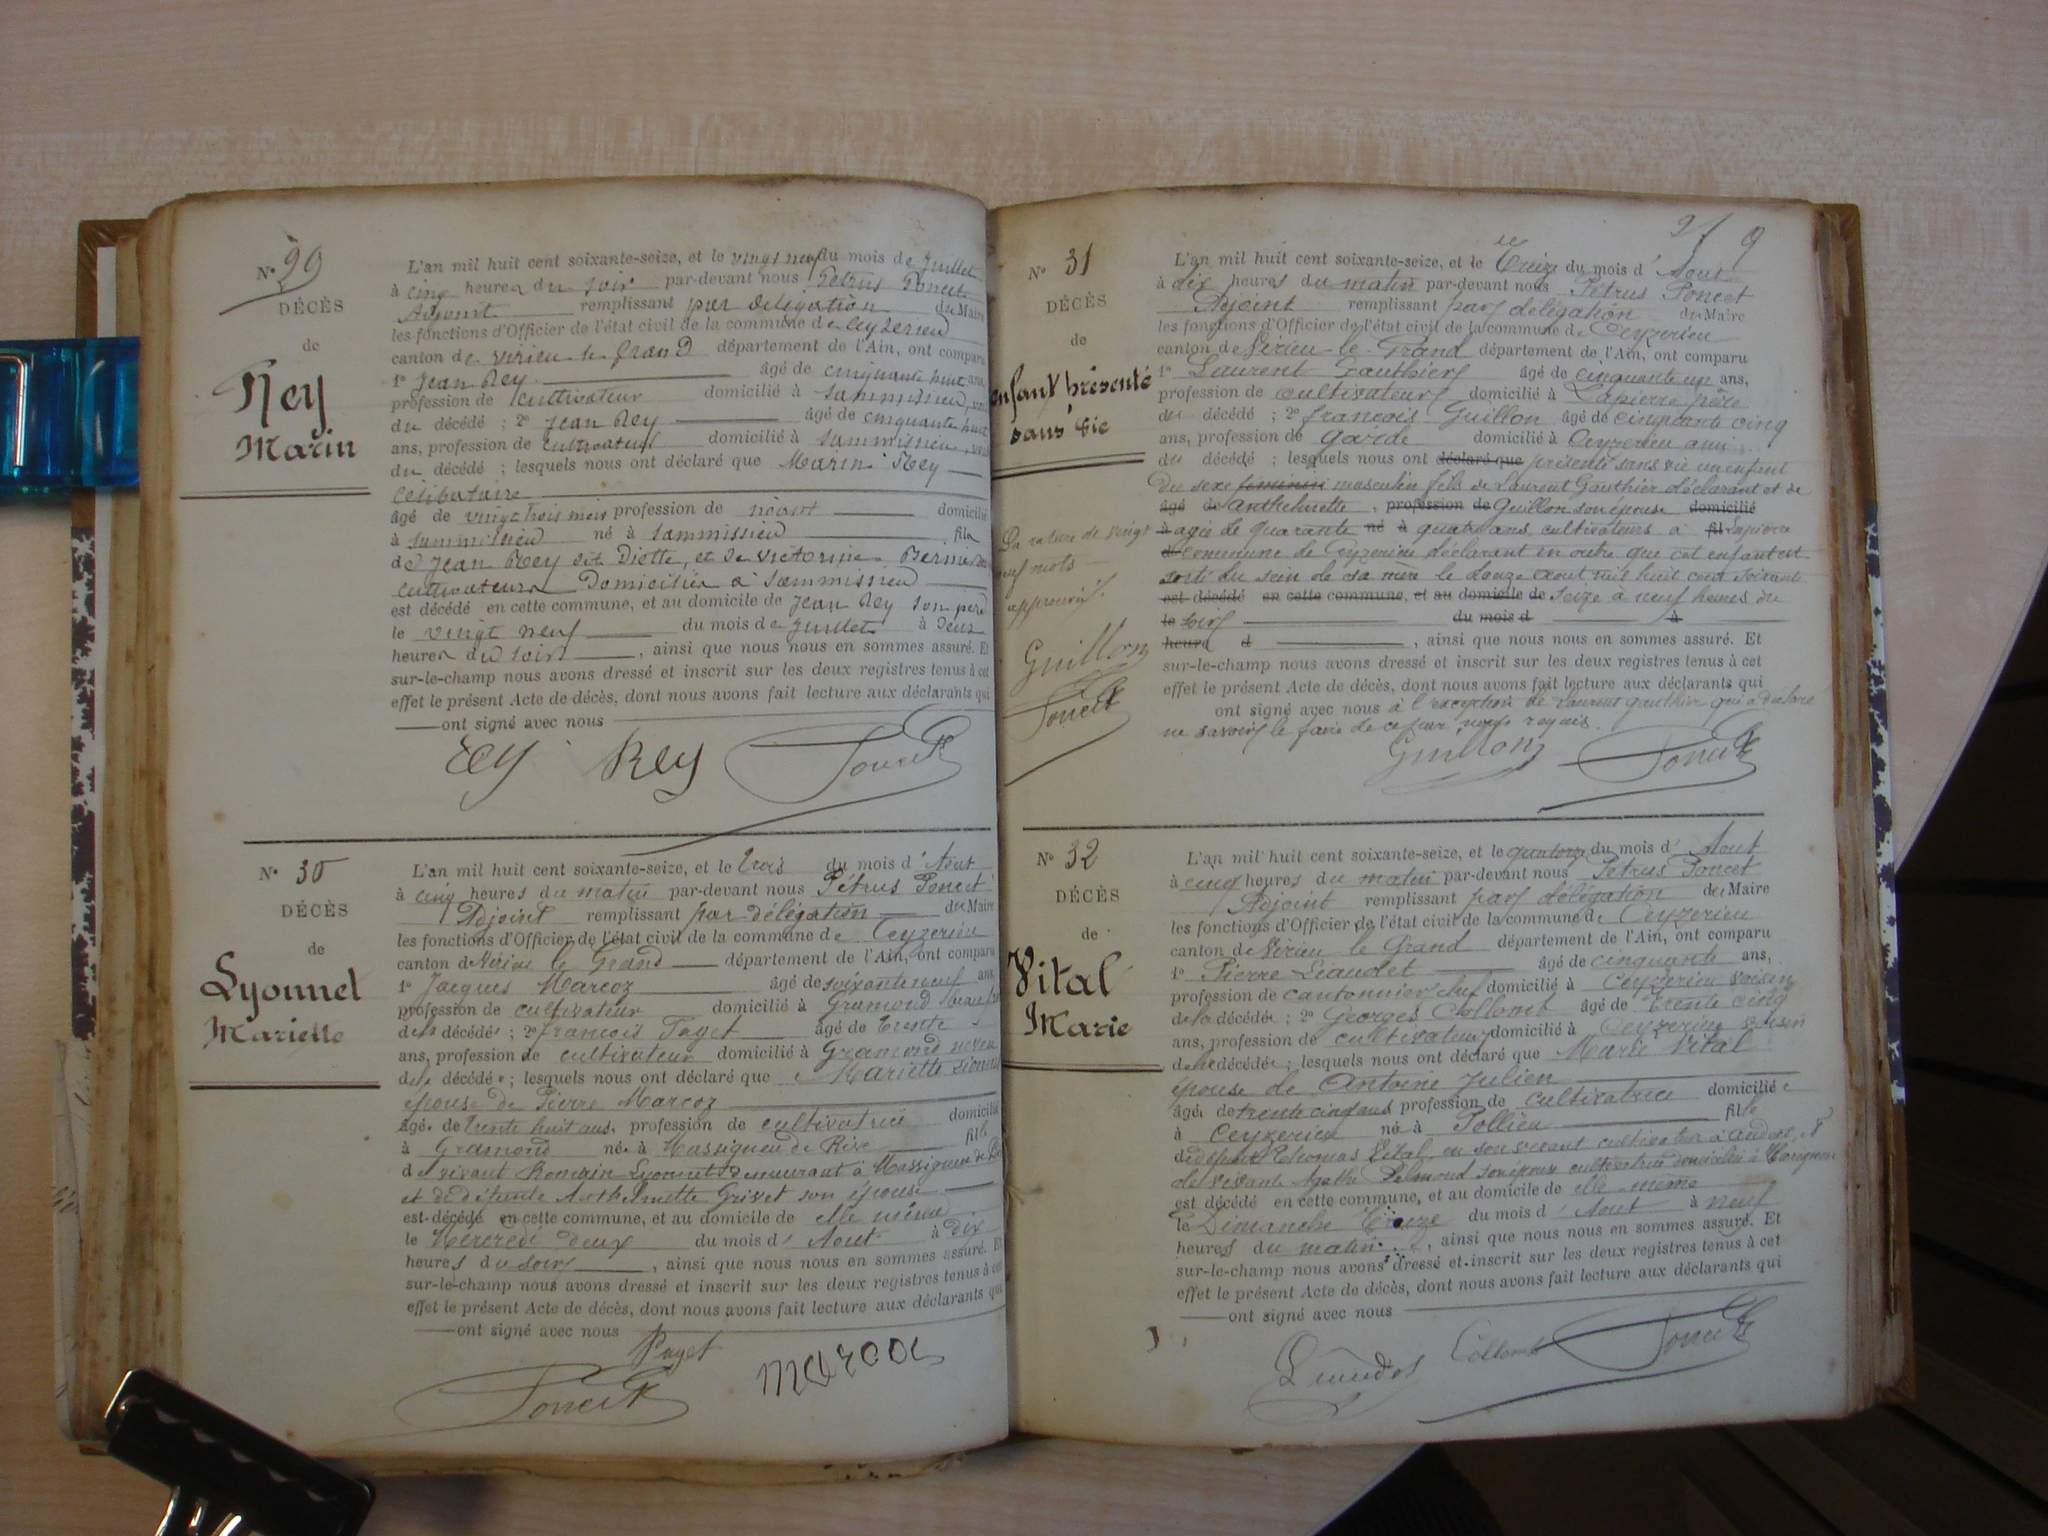 N° 29
DÉCÈS
de
Rey
Marin
L'an mil huit cent soixante-seize, et le vingt neuf du mois de Juillet
à cinq heures du soir par-devant nous Pétrus Poncet
Adjoint remplissant par délégation du Maire
les fonctions d'Officier de l'état civil de la commune de Ceyzerieu
canton de virieu le grand département de l'Ain, ont comparu
1° Jean Rey âgé de cinquante huit ans,
profession de cultivateur domicilié à Sammissieu,
du décédé ; 2° Jean Rey âgé de cinquante huit
ans, profession de cultivateur domicilié à Sammissieu,
du décédé ; lesquels nous ont déclaré que Marin Rey
célibataire
âgé de vingt trois mois profession de néant domicilié
à Sammissieu né à Sammissieu fils
de Jean Rey dit Diotte, et de victorine
cultivateurs Domiciliés à Sammissieu
est décédé en cette commune, et au domicile de Jean Rey son père
le vingt neuf du mois de Juillet à deux
heures du soir, ainsi que nous nous en sommes assuré. Et
sur-le-champ nous avons dressé et inscrit sur les deux registres tenus à cet
effet le présent Acte de décès, dont nous avons fait lecture aux déclarants qui
ont signé avec nous
Rey Poncet
N° 30
DÉCÈS
de
Lyonnet
Mariette
L'an mil huit cent soixante-seize, et le trois du mois d'Aout
à cinq heures du matin par-devant nous Pétrus Poncet
Adjoint remplissant par délégation du Maire
les fonctions d'Officier de l'état civil de la commune de Ceyzerieu
canton de Virieu le Grand département de l'Ain, ont comparu
1° Jacques Marcoz âgé de soixante neuf ans
profession de cultivateur domicilié à Gramond
de la décédée ; 2° francois Paget âgé de trente
ans, profession de cultivateur domicilié à Gramond neveu
de la décédée ; lesquels nous ont déclaré que Mariette
épouse de Pierre Marcoz
âgée de trente huit ans, profession de cultivatrice domiciliée
à Gramond née à Massigneu de Rive fille
de vivant Romain Lyonnet demeurant à Massigneu de
et de défunte Anthelmette Grivet son épouse
est décédé en cette commune, et au domicile de elle même
le Mercredi deux du mois d'Aout à dix
heures du soir, ainsi que nous nous en sommes assuré. Et
sur-le-champ nous avons dressé et inscrit sur les deux registres tenus à cet
effet le présent Acte de décès, dont nous avons fait lecture aux déclarants qui
ont signé avec nous
Paget
Poncet Marcoz
9
N° 31
DÉCÈS
de
enfant présenté
sans vie
L'an mil huit cent soixante-seize, et le treize du mois d'Aout
à dix heures du matin par-devant nous Pétrus Poncet
Adjoint remplissant par délégation du Maire
les fonctions d'Officier de l'état civil de la commune de Ceyzerieu
canton de Virieu-le-Grand département de l'Ain, ont comparu
1° Laurent Gauthier âgé de cinquante un ans,
profession de cultivateur domicilié à Lapierre père
du décédé ; 2° francois Guillon âgé de cinquante cinq
ans, profession de garde domicilié à Ceyzerieu ami
du décédé ; lesquels nous ont déclaré que présenté sans vie un enfant
du sexe feminin masculin fils de Laurent Gauthier déclarant et de
âgé de Anthelmette, profession de Guillon son épouse domicilié
à agée de quarante né à quatre ans cultivateurs à fil Lapierre
d commune de Ceyzerieu déclarant en outre que cet enfant est
sorti du sein de sa mère le douze aout mil huit cent soixante
est décédé en cette commune, et au domicile de seize à neuf heures du
le soir du mois d à
heure d, ainsi que nous nous en sommes assuré. Et
sur-le-champ nous avons dressé et inscrit sur les deux registres tenus à cet
effet le présent Acte de décès, dont nous avons fait lecture aux déclarants qui
ont signé avec nous à l'exception de Laurent Gauthier qui a déclaré
ne savoir le faire de ce par nous requis.
Guillon Poncet
La rature de vingt
neuf mots
approuvée.
Guillon
Poncet
N° 32
DÉCÈS
de
Vital
Marie
L'an mil huit cent soixante-seize, et le quatorze du mois d'Aout
à cinq heures du matin par-devant nous Pétrus Poncet
Adjoint remplissant par délégation du Maire
les fonctions d'Officier de l'état civil de la commune de Ceyzerieu
canton de Virieu le Grand département de l'Ain, ont comparu
1° Pierre Liaudet âgé de cinquante ans,
profession de cantonnier chef domicilié à Ceyzerieu voisin
de la décédée ; 2° Georges Collomb âgé de trente cinq
ans, profession de cultivateur domicilié à Ceyzerieu voisin
de la décédée ; lesquels nous ont déclaré que Marie Vital
épouse de Antoine Julien
âgée de trente cinq ans profession de cultivatrice domiciliée
à Ceyzerieu née à Pollieu fille
de Thomas Vital en son vivant cultivateur à
de vivante Agathe son épouse cultivatrice domiciliée à
est décédé en cette commune, et au domicile de elle-même
le Dimanche treize du mois d'Aout à neuf
heures du matin, ainsi que nous nous en sommes assuré. Et
sur-le-champ nous avons dressé et inscrit sur les deux registres tenus à cet
effet le présent Acte de décès, dont nous avons fait lecture aux déclarants qui
ont signé avec nous
Collomb Poncet